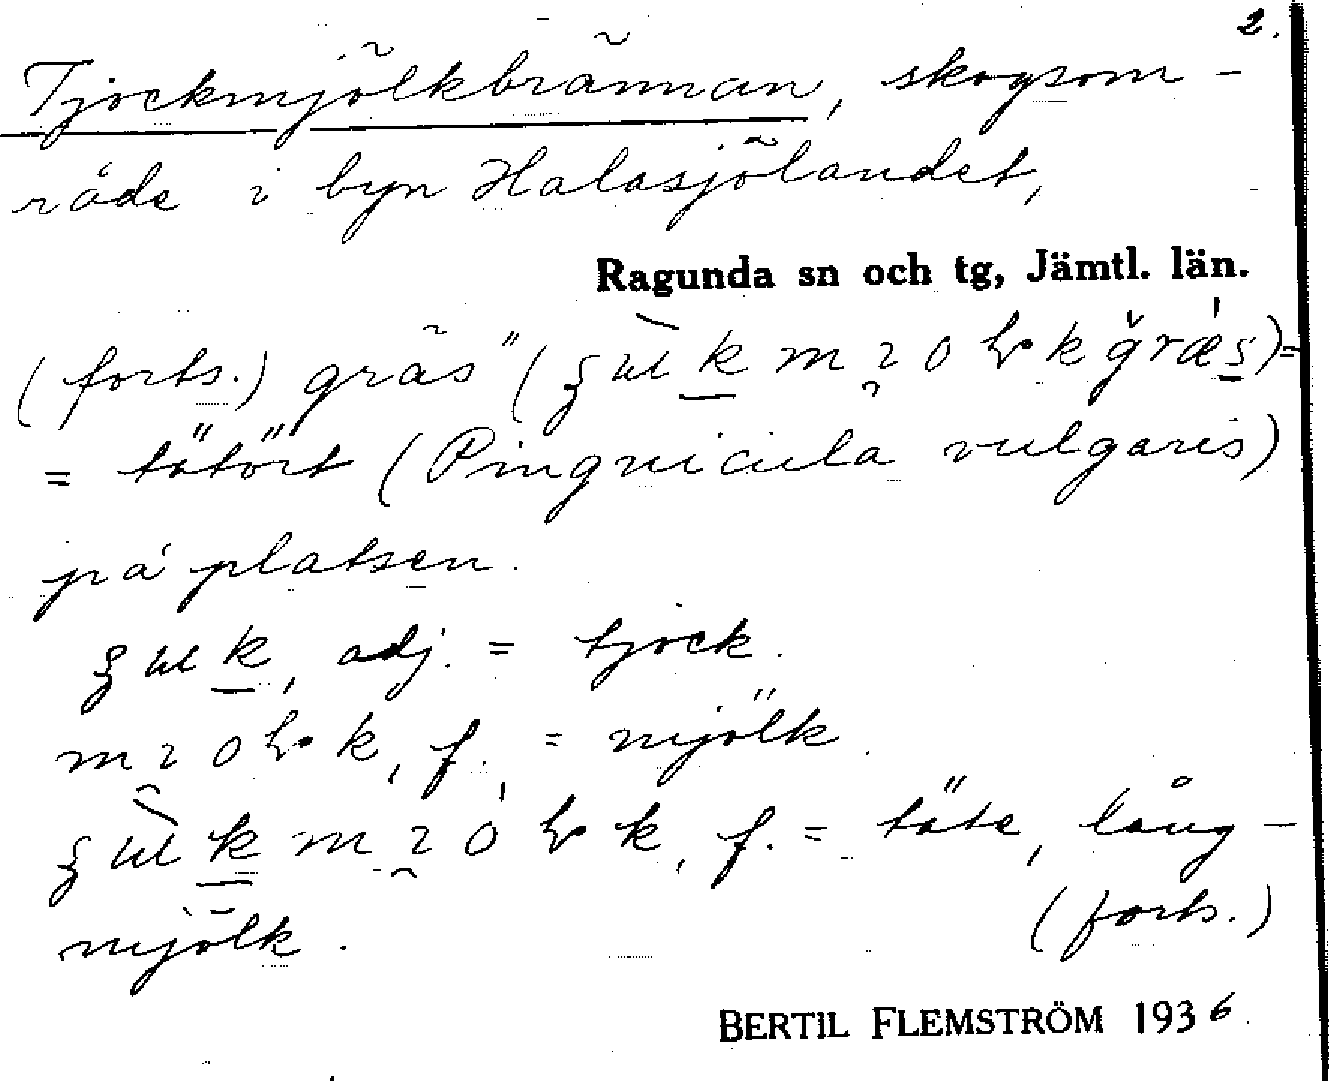 2.
Tjockmjölkbrännan, skogsom-
råde i byn Halasjölandet,
Ragunda sn och tg, Jämtl. län.
(forts.) gräs" ( )=
= tätört (Pinguicula vulgaris)
på platsen.
adj. = tjock.
f. = mjölk.
f. = täte, lång-
mjölk. (forts.)
BERTIL FLEMSTRÖM 1936.